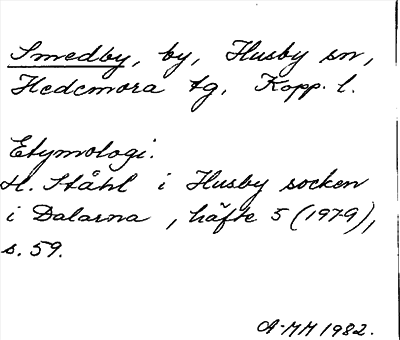 Smedby, by, Husby sn,
Hedemora tg. Kopp. l.
Etymologi.
H. Ståhl i Husby socken
i Dalarna, häfte 5 (1979),
s. 59.
A-MM 1982.